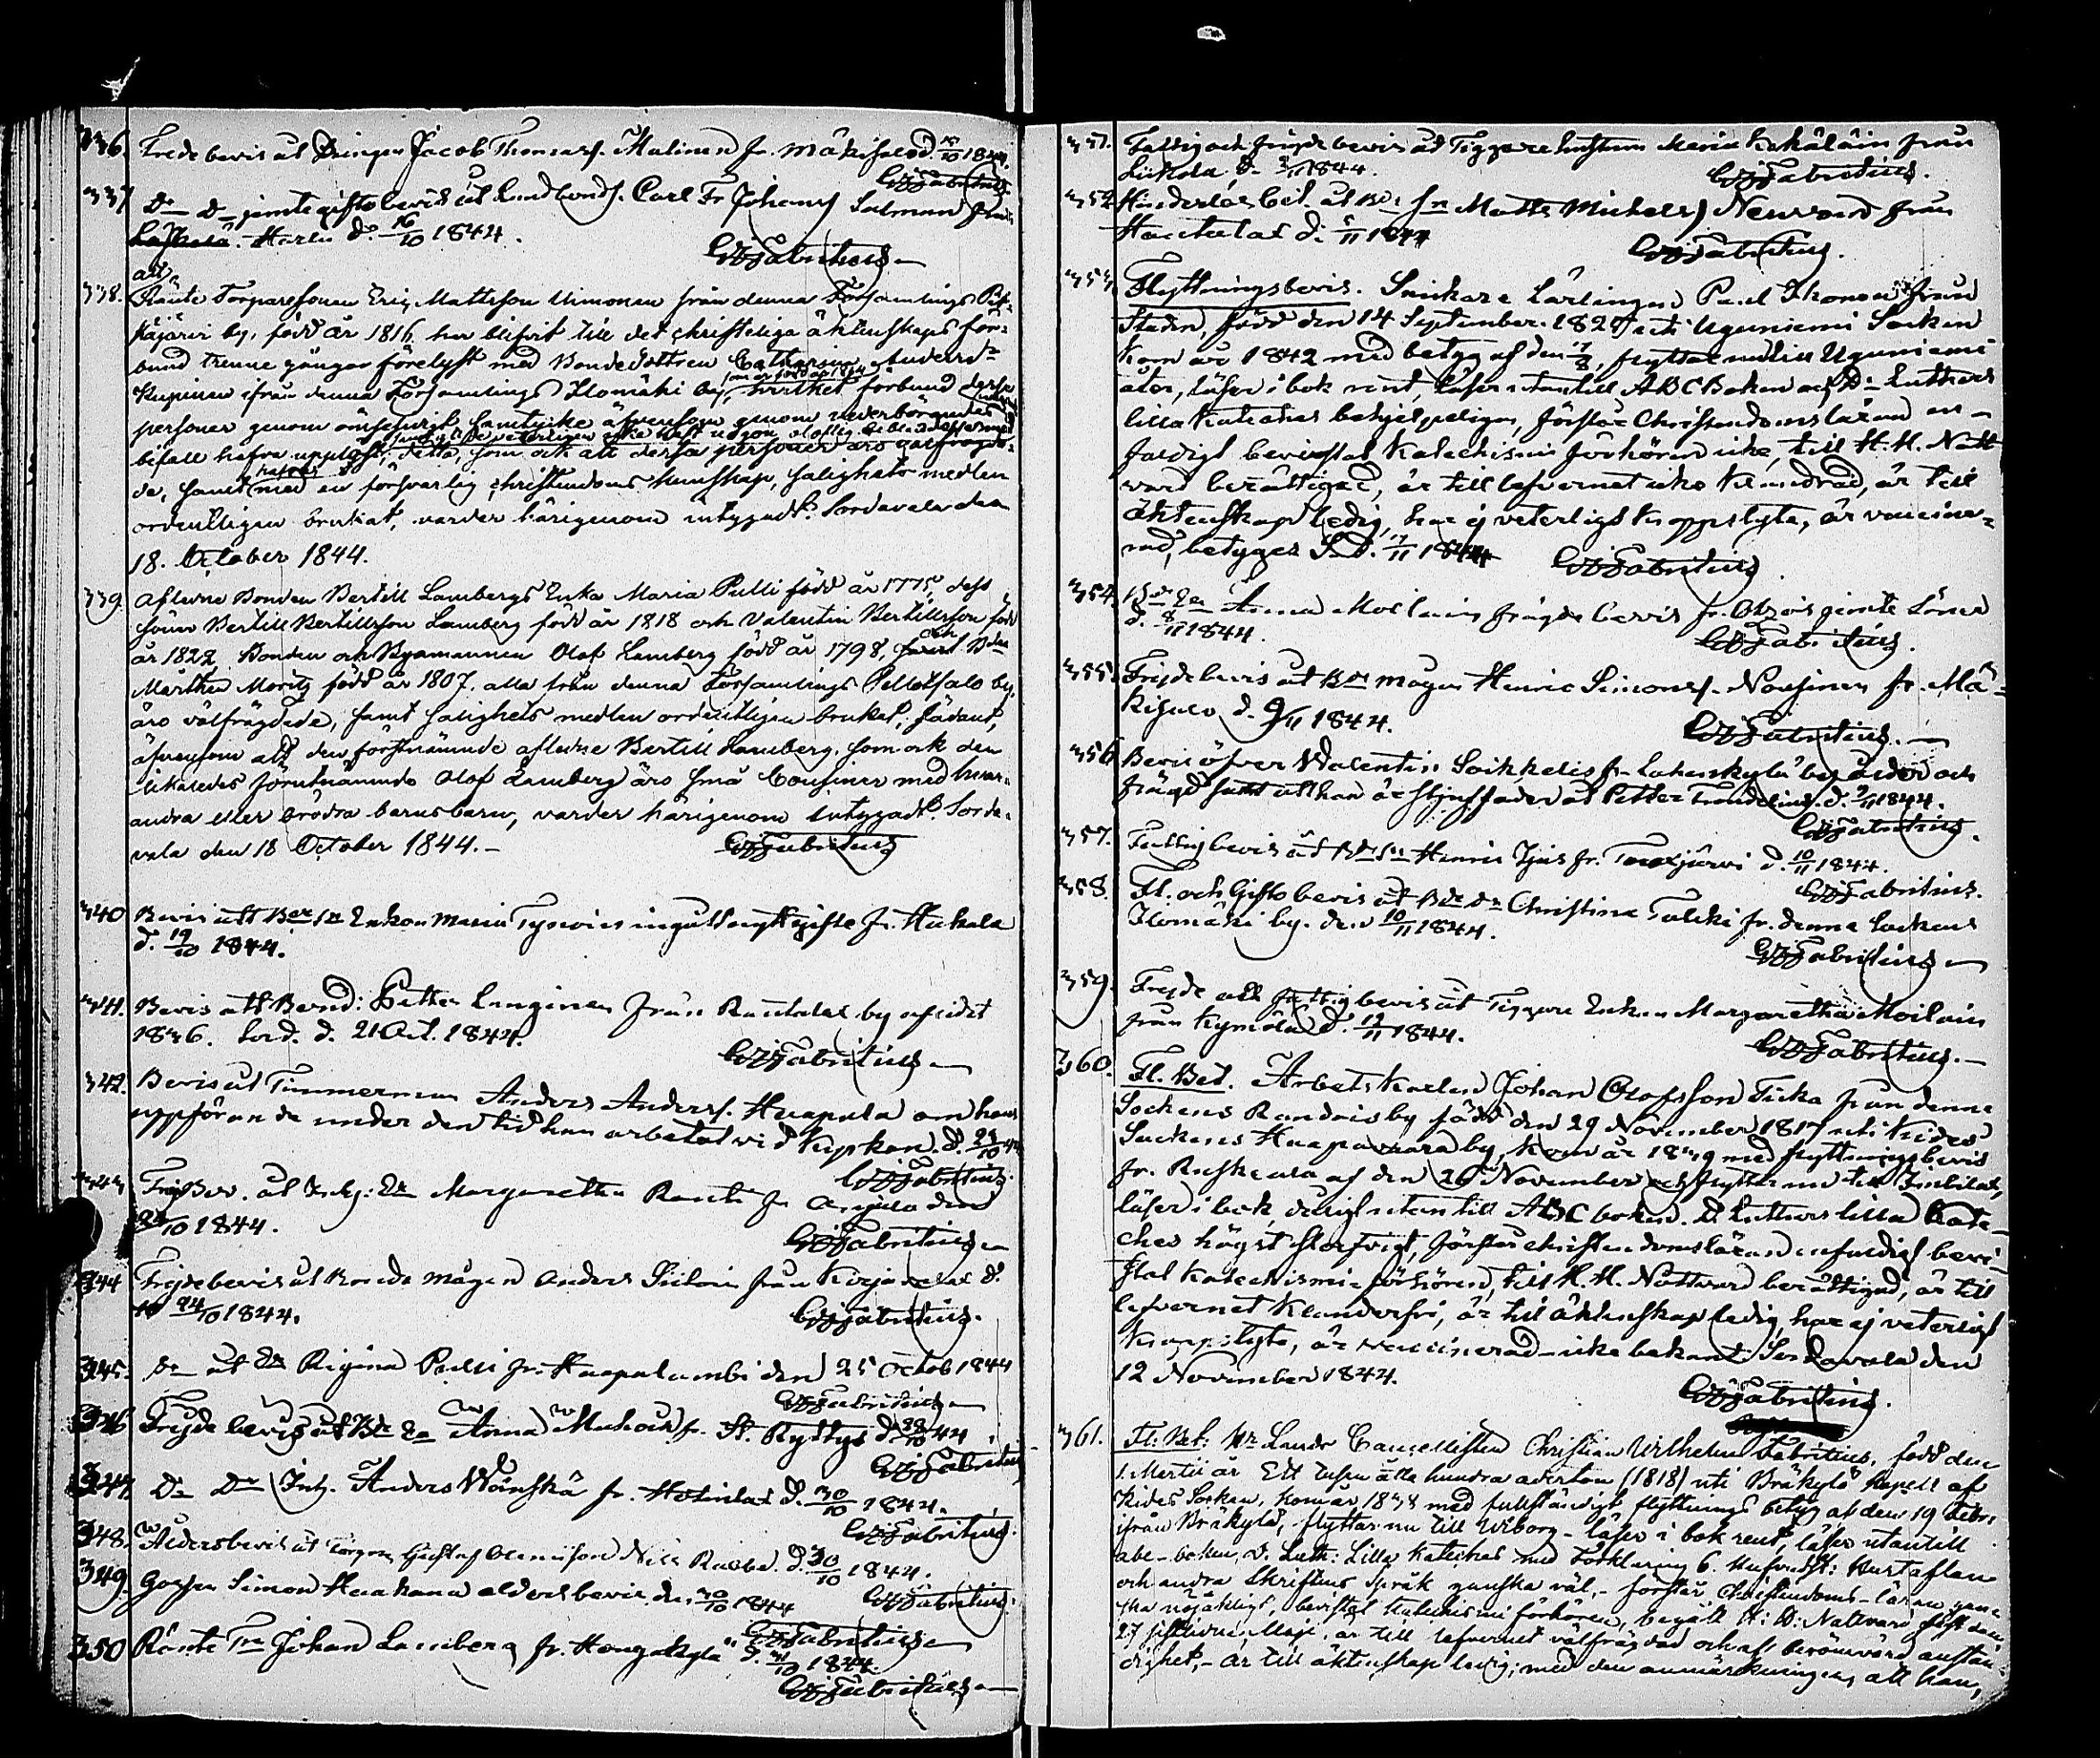 336. Frede bevis åt Drängen Jacob Thomass. Malinen fr. Mäkisalo d. 15/10 1844.
GWFabritius
337 Do Do jemte giftobevis åt Landbonds. Carl Fr Johans Salman från
Harlu d. 16/10 1844.
GWFabritius
338. att
Ränte Torparesonen Eric Mattsson Uimonen från denna Församlings
by, född år 1816, har blifvit till det christeliga äktenskaps för-
bund trenne gångor förelyst med Bondedottren Catharina Anders-
Kupinen ifrån denna Församlings Ilomäki by, hvilket förbund dessa
personer genom ömsesidigt samtycke äfvensom genom vederbörandes
bifall hafva upplöst; detta, som ock att dessa personer äro välfrägda-
de, samt med en försvarlig christendoms kunskap, salighets medlen
ordentligen brukat, varder härigenom intygadt. Sordavala den
18. October 1844.
339. Aflidne Bonden Bertill Lambergs Enka Maria Pulli född år 1775, dess
söner Bertill Bertillsson Lamberg född år 1818 och Valentin Bertillsson född
år 1822, Bonden och Byamannen Olof Lamberg född år 1798, och Bden
Mårthen Moritz född år 1807. alla från denna Församlings Pellotsalo by,
äro välfrägdade, samt salighets medlen ordentligen brukat; sådant,
äfvensom att den förstnämnde aflidne Bertill Lamberg, som ock den
likaledes förutnämnde Olof Lamberg äro små Cousiner med hvar-
andra eller brödra barnsbarn, varder härigenom intygadt. Sorda-
vala den 18 October 1844.–
GWFabritius
340 Bevis att Enkan Maria ingått nytt gifte fr.
d. 19/10 1844.
341. Bevis att Bond: Petter Langinen från Rautalax by afledit
1836. Sord. d. 21 Oct. 1844.
GWFabritius
342. Bevis åt Timmerman Anders Anderss. Haapala om hans
uppförande under den tid han arbetat vid Kyrkan. d. 23/10 44
GWFabritius
343 Frejdbev. åt Inhs: En Margaretha Ranta fr den
/10 1844.
GWFabritius
344 Frejdebevis åt Bonde mågen Anders Siiloin från Kirjavalax d.
24/10 1844.
GWFabritius.
345. Do åt En Rigina Pulli fr. Haapalambi den 25 Octob 1844
GWFabritius
346 Frejde bevis åt Bde Ea Anna Muhoin fr. d. 28/10 44
GWFabritius
347. Do Do Inh. Anders Wänskä fr. d. 30/10 1844.
GWFabritius.
348. Åldersbevis åt Gustaf Nils d. 30/10 1844.
GWFabritius.
349. Gossen Simon Haakana åldersbevis d. 30/10 1844
GWFabritius
350 Ränte Johan Lamberg fr. d. 31/10 1844.
GWFabritius
351. Fattig och frejde bevis åt Tiggare hustrun Maria från
d. 2/11 1844.
GWFabritius.
352 Hinderlös bet. åt Bde sn Matts Michelss Neuvonen från
d. 5/11 1844
GWFabritius.
353. Flyttningsbevis. Snickare Lärlingen Paul Ikonen från
Staden, född den 14 September 1827 uti Uguniemi Socken
kom år 1842 med betyg af den flyttar nu till Uguniemi
åter, läser i bok rent, läser utantill ABC Boken och Dr Luthers
lilla Kateches behjelpeligen, förstår Christendomsläran en-
faldigt bevistat Katechismi förhören icke, till H. H. Natt-
vard berättigad, är till lefvernet icke klandrad, är till
äktenskap ledig, har ej veterligt kroppslyte, är vaccine-
rad, betygas Sd. /11 1844
GWFabritius
354. Bde Ea Anna Moilain frägde bevis fr. jemte Söner
d. 8/11 1844.
GWFabritius.
355. Frejdebevis åt Bde mågen Henric Simonss. Nousinen fr. Mä-
kisalo d. 9/11 1844.
GWFabritius.
356. Bevis öfver Walentin fr. by ålder och
frägd samt att han är styffader åt Petter d. 9/11 1844.
GWFabritius.
357. Fattigbevis åt Bde sn Henric fr. d. 10/11 1844.
GWFabritius.
358. Fl. och Gifto bevis åt Bde dn Christina Tulki fr. denna Sockens
Ilomäki by. den 10/11 1844.
GWFabritius
359. Frejde och fattig bevis åt Tiggare Enkan Margaretha Moilain
från Kymölä d. 12/11 1844.
GWFabritius.
360. Fl. Bet. Arbetskarlen Johan Olofsson Ticka från denna
Sockens by född den 29 November 1817 uti Kides
Sockens Haapavaara by, kom år 1839 med flyttningsbevis
fr. Ruskeala af den 26 November och flyttar nu till Imbilax,
läser i bok utantill ABC boken. D. Luthers lilla Kate-
ches högst slarfvigt, förstår christendomsläran enfaldigt bevi-
stat Katechismi förhören, till H. H. Nattvard berättigad, är till
lefvernet klanderfri, är till äktenskap ledig, har ej veterligt
kroppslyte, är vaccinerad icke bekant. Sordavala den
12 November 1844.
GWFabritius.
361. Fl: Bet: Hr Lands Cancellisten Christian Wilhelm Fabritius, född den
1. Martii år Ett tusen åtta hundra aderton (1818) uti Bräkylä Kapell af
Kides Socken, kom år 1838 med fullständigt flyttnings betyg af den 19 Febr:
ifrån Bräkylä, flyttar nu till Wiborg – läser i bok rent, läser utantill
abc-boken, D. Luth: Lilla Kateches med Förklaring 6. Hustaflan
och andra Skriftens Språk ganska väl, – förstår Christendoms-läran gan-
ska nöjaktigt, bevistat Katechismi förhören, begått H: H: Nattvard sist den
27 Maji, är till lefvernet välfrägdad och af berömvärd anstän-
dighet, – är till äktenskap ledig; med den anmärkningen, att han,